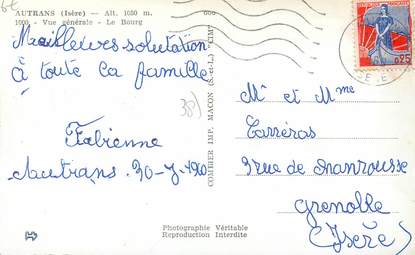 AUTRANS (Isère) — Alt. 1050 m.
1009 - Vue générale - Le Bourg
Meilleures salutation
à toute la famille
Fabienne
Autrans. 30-7-1960
COMBIER IMP. MACON (S.-et-L.) "CIM"
38)
0,25
Mr et Mme
Carréras
3 rue de Chanrousse
Grenoble
(Isère)
Photographie Véritable
Reproduction Interdite